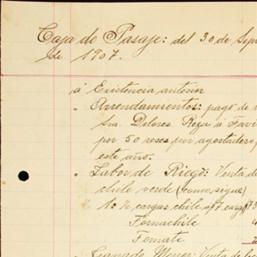 Caja de Pasaje: del 30 de Sep
de 1907.
á Existencia anterior
" Arrendamientos: pago de
Sra. Dolores Reza á Favor
por 50 reses por agostadero
este año.
" Labor de Riego: Venta de
chile verde (como sigue)
10 ½ cargas chile á 7 carga
Tornachile
Tomate
" Ganado Menor: Venta de